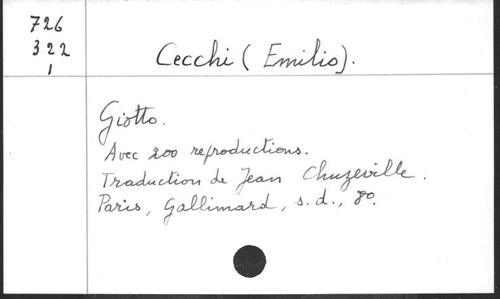 726
322
1
Cecchi (Emilio).
Giotto.
Avec 200 reproductions.
Traduction de Jean Chuzeville.
Paris, Gallimard, s.d., 8º.